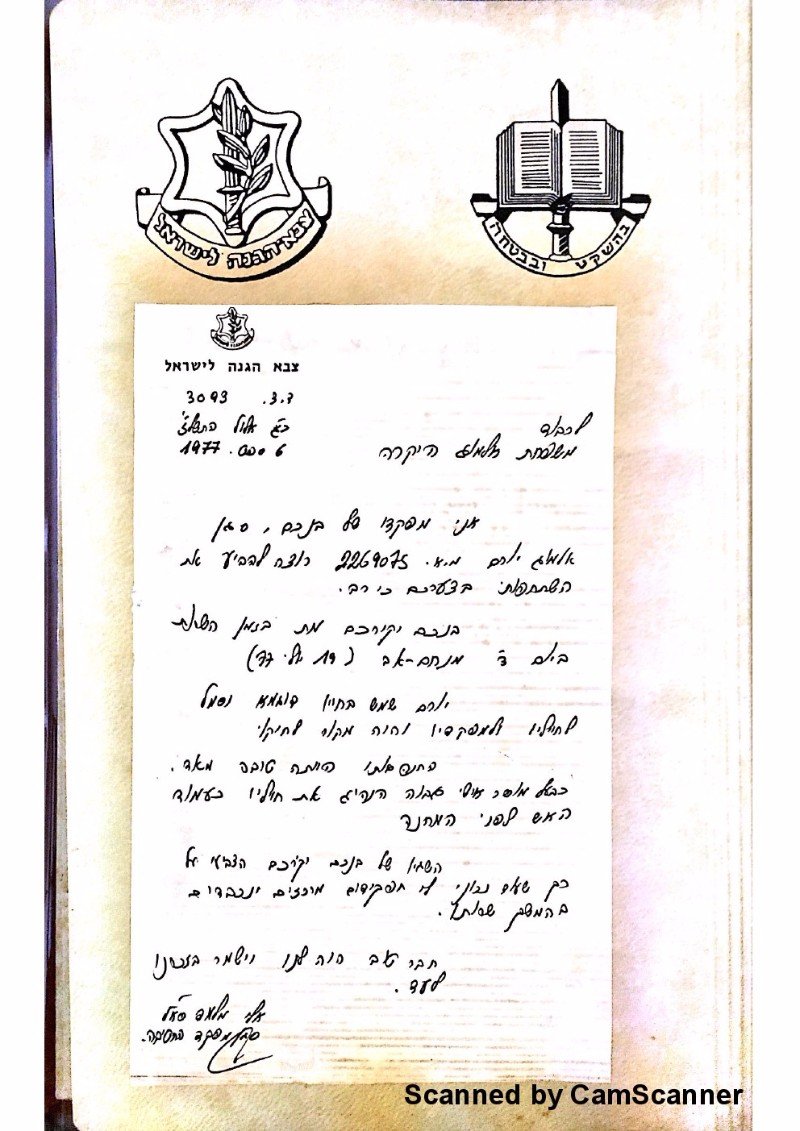 צבא הגנה לישראל
בהשקט ובבטחה
צבא הגנה לישראל
ד.צ. 3093
כ"ג אלול התשל"ז
6 ספט. 1977
לכבוד
משפחת אלמוג היקרה
אני מפקדו של בנכם, סגן
אלמוג יורם מ.א. 2269075 רוצה להביע את
השתתפותי בצערכם כי רב.
בנכם יקירכם מת בזמן השרות
ביום ד' מנחם-אב (19 יולי 77)
יורם שמש בחייו דוגמא וסמל
לחייליו ולמפקדיו והיה מקור לחיקוי
התנהגותו היתה טובה מאד.
כבעל מוסר אישי גבוה הנהיג את חייליו כעמוד
האש לפני המחנה
השגיו של בנכם יקירכם הצביעו על
כך שעוד נכונו לו תפקידים מרכזיים ונכבדים
בהמשך שרותו.
חבר טוב היה לנו וישמר בזכרוננו
לעד.
אלי
מפקד החטיבה.
Scanned by CamScanner